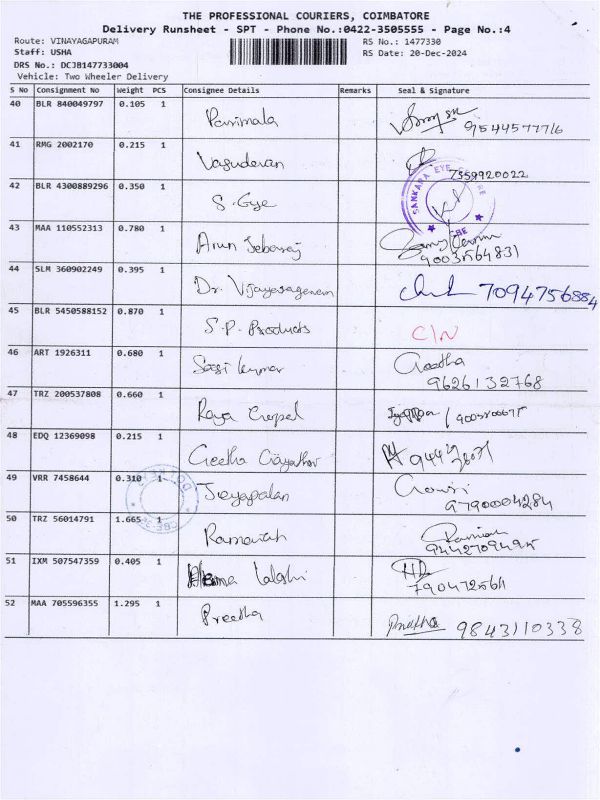 THE PROFESSIONAL COURIERS, COIMBATORE
Delivery Runsheet - SPT - Phone No.:0422-3505555 - Page No.:4
Route: VINAYAGAPURAM RS No.: 1477330
Staff: USHA RS Date: 20-Dec-2024
DRS No.: DCJB147733004
Vehicle: Two Wheeler Delivery
S No Consignment No Weight PCS Consignee Details Remarks Seal & Signature
40 BLR 840049797 0.105 1 Parimala 9544577716
41 RMG 2002170 0.215 1 Vasudevan 7559920022
42 BLR 4300889296 0.350 1 S. Gye SANKARA EYE CBE
43 MAA 110552313 0.780 1 Arun Jebaraj
44 SLM 360902249 0.395 1 Dr. 7094756884
45 BLR 5450588152 0.870 1 S.P. Products C/N
46 ART 1926311 0.680 1 Sasi kumar Geetha 9626132768
47 TRZ 200537808 0.660 1 Raya
48 EDQ 12369098 0.215 1 Geetha
49 VRR 7458644 0.310 1 Jeyapalan Gowri 9790004284
50 TRZ 56014791 1.665 1
51 IXM 507547359 0.405 1
52 MAA 705596355 1.295 1 Preetha Preetha 9843110338